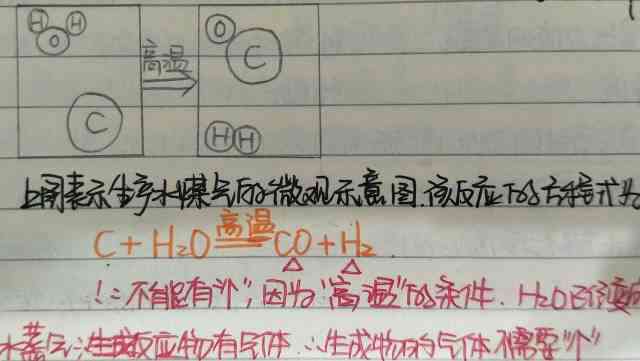 H H O
C
高温
O C
H H
上图表示生产水煤气的微观示意图.该反应的方程式为
C+H₂O 高温 CO+H₂
△ △
!:不能有"↑",因为"高温"的条件.H₂O已经变成
水蒸气∴生成反应物有气体.∴生成物的气体不需要"↑"